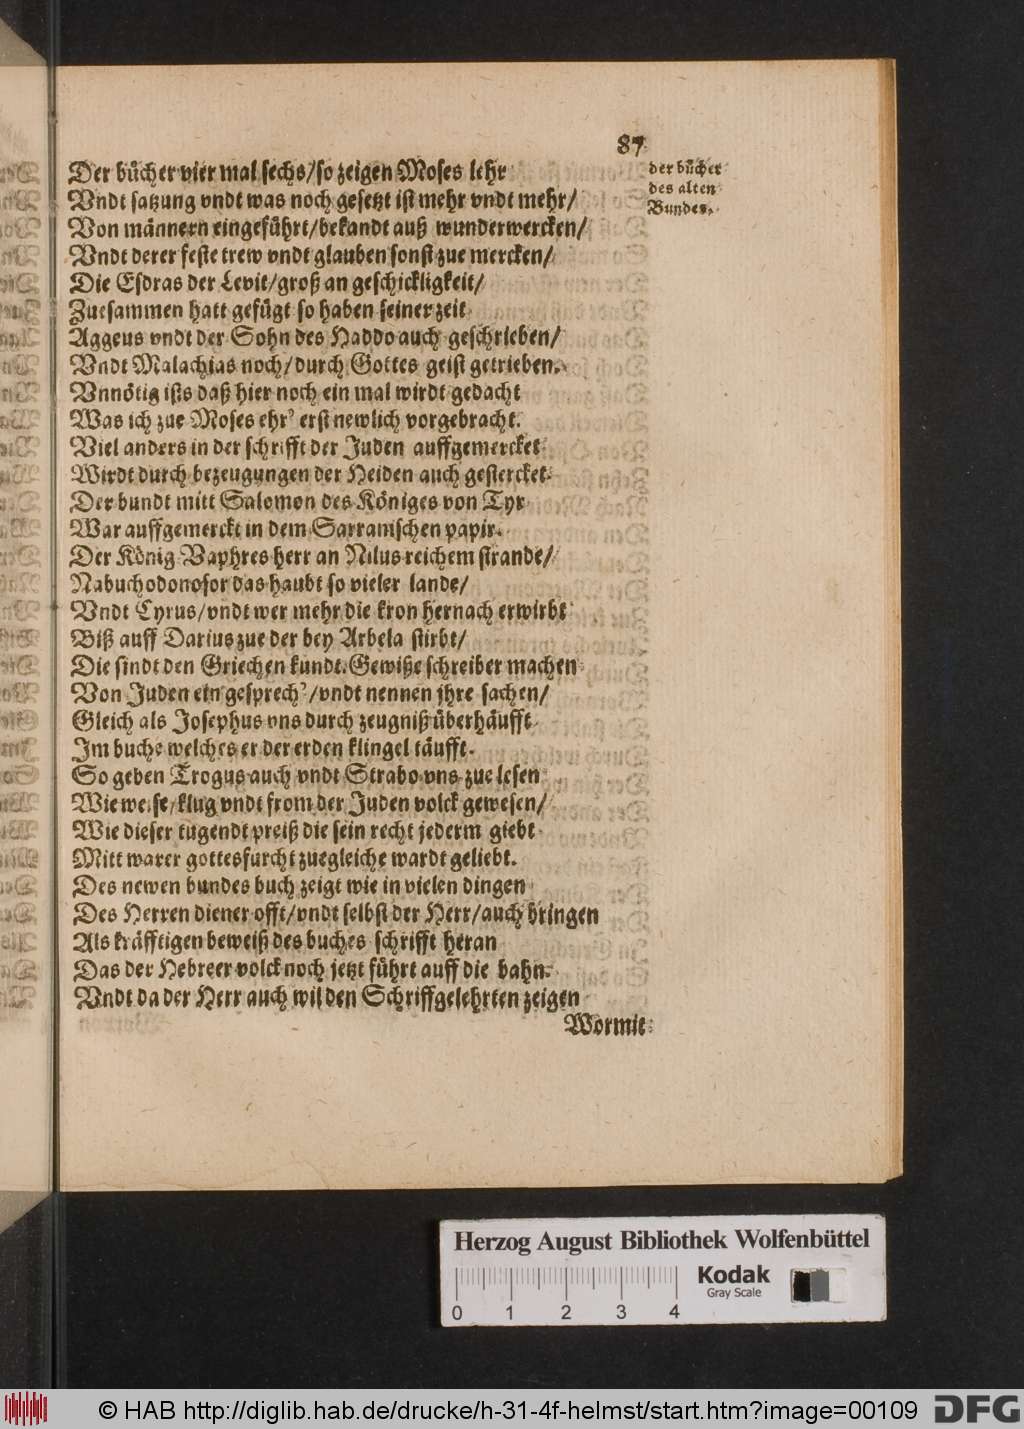 87
Der bücher vier mal sechs/so zeigen Moses lehr
Vndt satzung vndt was noch gesetzt ist mehr vndt mehr/
Von männern eingeführt/bekandt auß wunderwercken/
Vndt derer feste trew vndt glauben sonst zue mercken/
Die Esdras der Levit/groß an geschickligkeit/
Zuesammen hatt gefügt so haben seiner zeit
Aggeus vndt der Sohn des Haddo auch geschrieben/
Vndt Malachias noch/durch Gottes geist getrieben.
Vnnötig ists daß hier noch ein mal wirdt gedacht
Was ich zue Moses ehr' erst newlich vorgebracht.
Viel anders in der schrifft der Juden auffgemercket
Wirdt durch bezeugungen der Heiden auch gestercket.
Der bundt mitt Salomon des Königes von Tyr
War auffgemerckt in dem Sarranischen papir.
Der König Vaphres herr an Nilus reichem strande/
Nabuchodonosor das haubt so vieler lande/
Vndt Cyrus/vndt wer mehr die kron hernach erwirbt
Biß auff Darius zue der bey Arbela stirbt/
Die sindt den Griechen kundt. Gewiße schreiber machen
Von Juden ein gesprech'/vndt nennen jhre sachen/
Gleich als Josephus vns durch zeugniß überhäufft
Im buche welches er der erden klingel täufft.
So geben Trogus auch vndt Strabo vns zue lesen
Wie weise/klug vndt from der Juden volck gewesen/
Wie dieser tugendt preiß die sein recht jederm giebt
Mitt warer gottesfurcht zuegleiche wardt geliebt.
Des newen bundes buch zeigt wie in vielen dingen
Des Herren diener offt/vndt selbst der Herr/auch bringen
Als kräfftigen beweiß des buches schrifft heran
Das der Hebreer volck noch jetzt führt auff die bahn.
Vndt da der Herr auch wil den Schriffgelehrten zeigen
Wormit
der bücher
des alten
Bundes.
Herzog August Bibliothek Wolfenbüttel
Kodak
Gray Scale
0 1 2 3 4
© HAB http://diglib.hab.de/drucke/h-31-4f-helmst/start.htm?image=00109
DFG